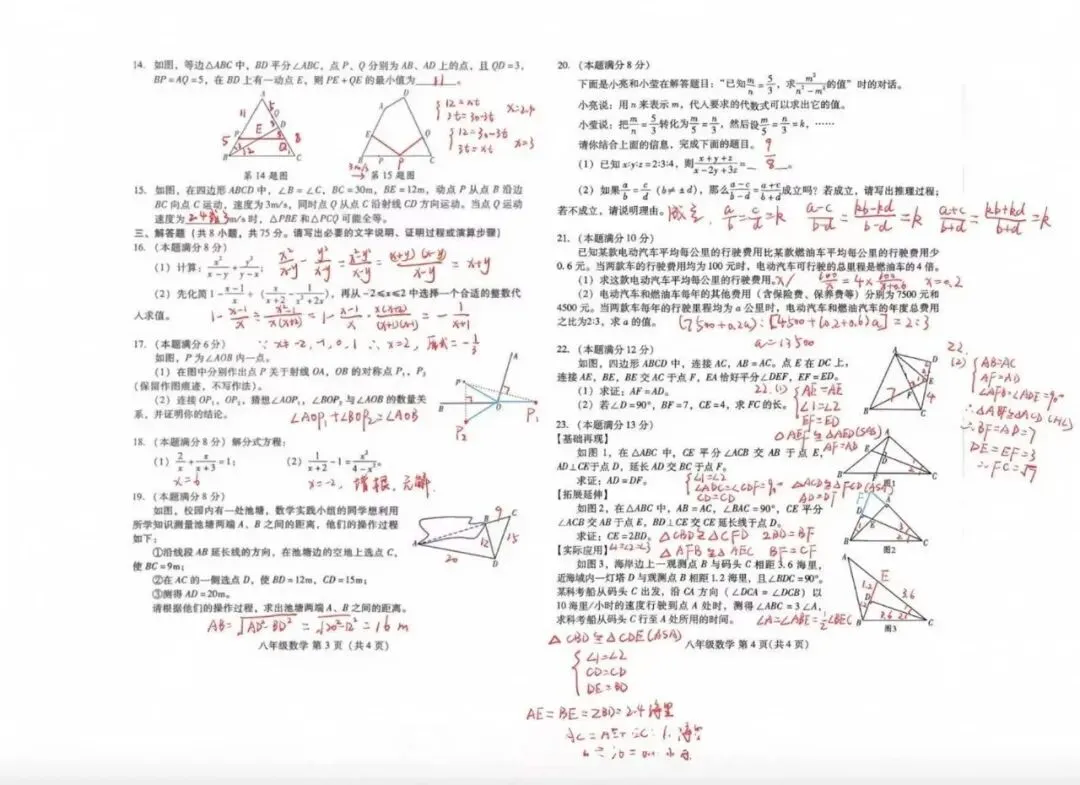 14. 如图，等边△ABC 中，BD 平分∠ABC，点 P、Q 分别为 AB、AD 上的点，且 QD=3，
BP=AQ=5，在 BD 上有一动点 E，则 PE+QE 的最小值为 11 。
A
5
Q
D
P
E
5
8
12
B
C
A
D
E
Q
B
P
C
3m/s
{12=xt
3t=30-3t
x=2.4
{12=30-3t
3t=xt
x=3
第 14 题图
第 15 题图
15. 如图，在四边形 ABCD 中，∠B=∠C，BC=30m，BE=12m，动点 P 从点 B 沿边
BC 向点 C 运动，速度为 3m/s，同时点 Q 从点 C 沿射线 CD 方向运动。当点 Q 运动
速度为 2.4或3 m/s 时，△PBE 和△PCQ 可能全等。
三、解答题（共 8 小题，共 75 分。请写出必要的文字说明、证明过程或演算步骤）
16.（本题满分 8 分）
（1）计算：x²/(x-y)+y²/(y-x)
x²/(x-y)-y²/(x-y)=(x²-y²)/(x-y)=(x+y)(x-y)/(x-y)=x+y
（2）先化简 1-(x-1)/x÷(x/(x+2)-1/(x²+2x))，再从-2≤x≤2 中选择一个合适的整数代
入求值。
1-(x-1)/x÷(x²-1)/(x(x+2))=1-(x-1)/x·x(x+2)/((x+1)(x-1))=-1/(x+1)
∵x≠-2,-1,0,1 ∴x=2, 原式=-1/3
17.（本题满分 6 分）
如图，P 为∠AOB 内一点。
（1）在图中分别作出点 P 关于射线 OA，OB 的对称点 P₁，P₂
（保留作图痕迹，不写作法）。
（2）连接 OP₁，OP₂，猜想∠AOP₁，∠BOP₂ 与∠AOB 的数量关
系，并证明你的结论。
∠AOP₁+∠BOP₂=∠AOB
A
P
B
O
P₁
P₂
18.（本题满分 8 分）解分式方程：
（1）2/x+x/(x+3)=1；
（2）1/(x+2)-1=x²/(4-x²)。
x=6
x=-2，增根，无解
19.（本题满分 8 分）
如图，校园内有一处池塘，数学实践小组的同学想利用
所学知识测量池塘两端 A、B 之间的距离，他们的操作过程
如下：
①沿线段 AB 延长线的方向，在池塘边的空地上选点 C，
使 BC=9m；
②在 AC 的一侧选点 D，使 BD=12m，CD=15m；
③测得 AD=20m。
请根据他们的操作过程，求出池塘两端 A、B 之间的距离。
AB=√(AD²-BD²)=√(20²-12²)=16 m
A
B
9
C
12
15
20
D
八年级数学 第 3 页（共 4 页）
20.（本题满分 8 分）
下面是小亮和小莹在解答题目：“已知m/n=5/3，求m²/(n²-m²)的值”时的对话。
小亮说：用 n 来表示 m，代入要求的代数式可以求出它的值。
小莹说：把m/n=5/3转化为m/5=n/3，然后设m/5=n/3=k，……
请你结合上面的信息，完成下面的题目。
（1）已知 x:y:z=2:3:4，则(x+y+z)/(x-2y+3z)= 9/8 。
（2）如果a/b=c/d（b≠±d），那么(a-c)/(b-d)=(a+c)/(b+d)成立吗？若成立，请写出推理过程；
若不成立，请说明理由。
成立，a/b=c/d=k (a-c)/(b-d)=(kb-kd)/(b-d)=k (a+c)/(b+d)=(kb+kd)/(b+d)=k
21.（本题满分 10 分）
已知某款电动汽车平均每公里的行驶费用比某款燃油车平均每公里的行驶费用少
0.6 元。当两款车的行驶费用均为 100 元时，电动汽车可行驶的总里程是燃油车的 4 倍。
（1）求这款电动汽车平均每公里的行驶费用。
x=0.2
（2）电动汽车和燃油车每年的其他费用（含保险费、保养费等）分别为 7500 元和
4500 元。当两款车每年的行驶里程均为 a 公里时，电动汽车和燃油车的年度总费用
之比为2:3，求 a 的值。
(7500+0.2a):[4500+(0.2+0.6)a]=2:3
a=13500
22.（本题满分 12 分）
如图，四边形 ABCD 中，连接 AC，AB=AC。点 E 在 DC 上，
连接 AE，BE，BE 交 AC 于点 F，EA 恰好平分∠DEF，EF=ED。
（1）求证：AF=AD。
（2）若∠D=90°，BF=7，CE=4，求 FC 的长。
22.(1) {AE=AE
∠1=∠2
EF=ED
△AEF≌△AED(SAS)
AF=AD
A
D
E
F
7
4
B
C
22.
(2) {AB=AC
AF=AD
∠AFB=∠ADE=90°
∴△ABF≌△ACD(HL)
∴BF=AD=7
DE=EF=3
∴FC=√7
23.（本题满分 13 分）
【基础再现】
如图 1，在△ABC 中，CE 平分∠ACB 交 AB 于点 E，
AD⊥CE于点 D，延长 AD 交 BC 于点 F。
求证：AD=DF。
{∠1=∠2
∠ADC=∠CDF=90°
CD=CD
△ACD≌△FCD(ASA)
AD=DF
图1
【拓展延伸】
如图 2，在△ABC 中，AB=AC，∠BAC=90°，CE 平分
∠ACB 交 AB 于点 E，BD⊥CE 交 CE 延长线于点 D。
求证：CE=2BD。
△CBD≌△CFD 2BD=BF
∠1=∠2=∠3
△AFB≌△AEC BF=CF
图2
【实际应用】
如图 3，海岸边上一观测点 B 与码头 C 相距 3.6 海里，
近海域内一灯塔 D 与观测点 B 相距 1.2 海里，且∠BDC=90°。
某科考船从码头 C 出发，沿 CA 方向（∠DCA=∠DCB）以
10 海里/小时的速度行驶到点 A 处时，测得∠ABC=3∠A，
求科考船从码头 C 行至 A 处所用的时间。
∠A=∠ABE=½∠BEC
A
E
1.2
3.6
D
B
3.6
C
图3
八年级数学 第 4 页（共 4 页）
△CBD≌△CDE(ASA)
{∠1=∠2
CD=CD
DE=BD
AE=BE=2BD=2.4海里